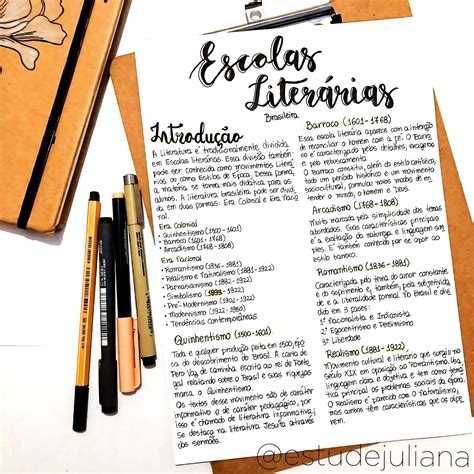 Escolas
Literárias
Brasileira
Introdução
A Literatura é tradicionalmente dividida
em Escolas literárias. Essa divisão também
pode ser conhecida como movimentos literá
rios ou como Estilos de Época. Dessa forma,
a matéria, se torna mais didática para os
alunos. A literatura brasileira pode ser dividi
da em duas formas: Era Colonial e Era Nacio
nal.
Era Colonial
• Quinhentismo (1500-1601)
• Barroco (1601-1768)
• Arcadismo (1768-1808)
Era Nacional
• Romantismo (1836-1881)
• Realismo e Naturalismo (1881-1922)
• Parnasianismo (1882-1922)
• Simbolismo (1893-1922)
• Pré-Modernismo (1902-1922)
• Modernismo (1922-1950)
• Tendências contemporâneas
Quinhentismo (1500-1601)
Toda e qualquer produção feita em 1500, época
do descobrimento do Brasil. A carta de
Pero Vaz de Caminha, escrita ao rei de Portu
gal relatando sobre o Brasil e suas riquezas
marca o Quinhentismo.
Os textos desse movimento são de caráter
informativo e de caráter pedagógico, por
isso é chamado de literatura informativa;
Se destaca na literatura Jesuíta através
dos sermões.
Barroco (1601-1768)
Essa escola literária aparece com a intenção
de reconciliar o homem com a fé. O Barro
co é caracterizado pelos detalhes, exageros
e pelo rebuscamento.
O Barroco constitui, além do estilo artístico,
todo um período histórico e um movimento
sociocultural, formulou novos modos de en
tender o mundo, o homem e Deus.
Arcadismo (1768-1808)
Muito marcada pela simplicidade dos temas
abordados. Suas características principais
é a exaltação da natureza e linguagem sim
ples. É também conhecido por se opor ao
estilo barroco.
Romantismo (1836-1881)
Caracterizada pelo tema do amor constante
e do sofrimento e, também, pela subjetivida
de e a liberdade formal. No Brasil é divi
dido em 3 fases:
1ª Nacionalista e Indianista
2ª Egocentrismo e Pessimismo
3ª Liberdade
Realismo (1881-1922)
Movimento cultural e literário que surgiu no
século XIX em oposição ao Romantismo. Usa
linguagem clara e objetiva e têm como tema
principal os problemas sociais da época.
O Realismo é parecido com o Naturalismo,
mas ambos têm características que os dife
rem.
@estudejuliana